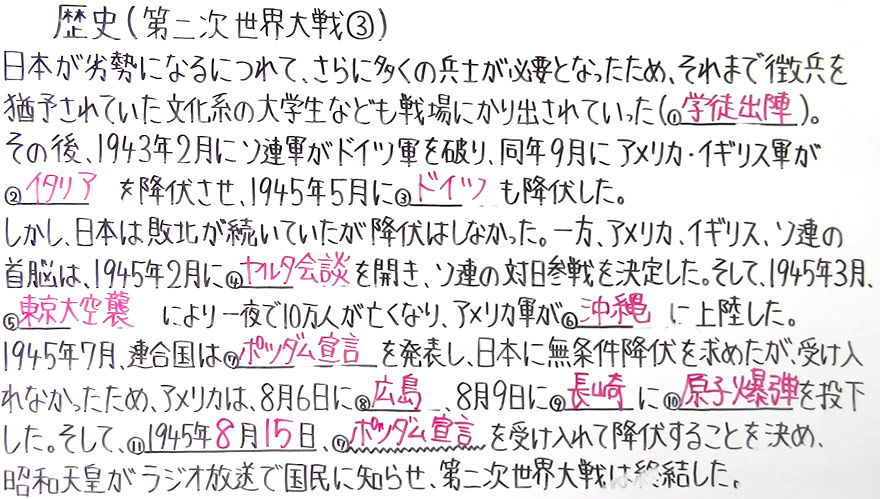 歴史(第二次世界大戦③)
日本が劣勢になるにつれて、さらに多くの兵士が必要となったため、それまで徴兵を
猶予されていた文化系の大学生なども戦場にかり出されていった(①学徒出陣)。
その後、1943年2月にソ連軍がドイツ軍を破り、同年9月にアメリカ・イギリス軍が
②イタリア を降伏させ、1945年5月に③ドイツも降伏した。
しかし、日本は敗北が続いていたが降伏はしなかった。一方、アメリカ、イギリス、ソ連の
首脳は、1945年2月に④ヤルタ会談を開き、ソ連の対日参戦を決定した。そして、1945年3月、
⑤東京大空襲 により一夜で10万人が亡くなり、アメリカ軍が⑥沖縄 に上陸した。
1945年7月、連合国は⑦ポツダム宣言 を発表し、日本に無条件降伏を求めたが、受け入
れなかったため、アメリカは、8月6日に⑧広島 、8月9日に⑨長崎 に⑩原子爆弾を投下
した。そして、⑪1945年8月15日、⑦ポツダム宣言 を受け入れて降伏することを決め、
昭和天皇がラジオ放送で国民に知らせ、第二次世界大戦は終結した。